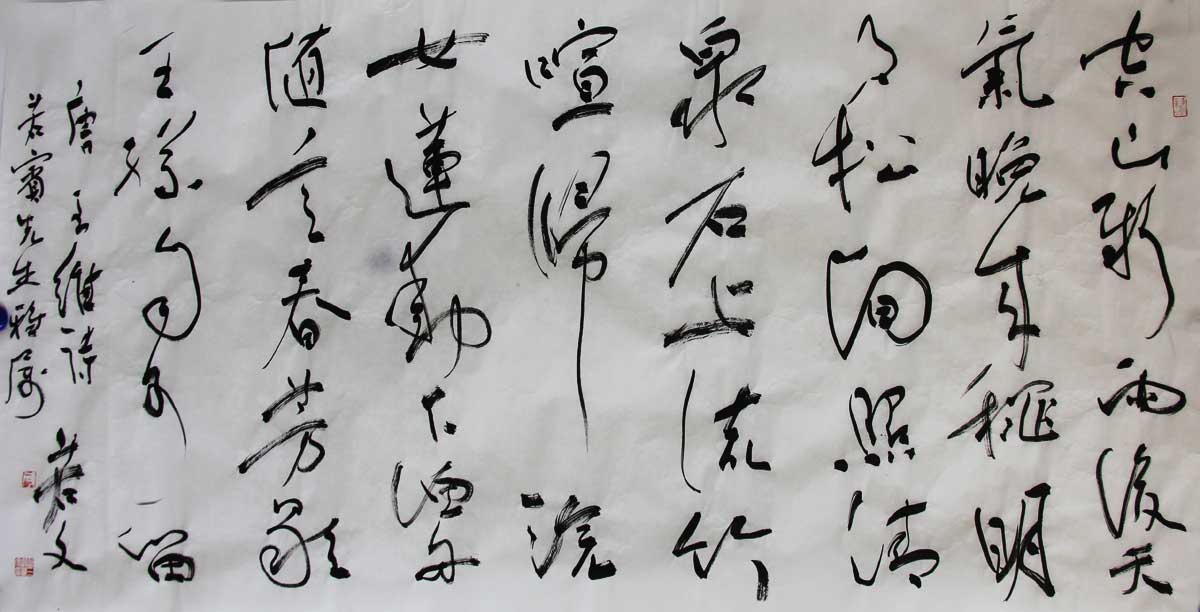 空山新雨後天
氣晚來秋明
月松間照清
泉石上流竹
喧歸浣
女蓮動下漁舟
隨意春芳歇
王孫自可留
唐王維詩
若賓先生雅属
若文